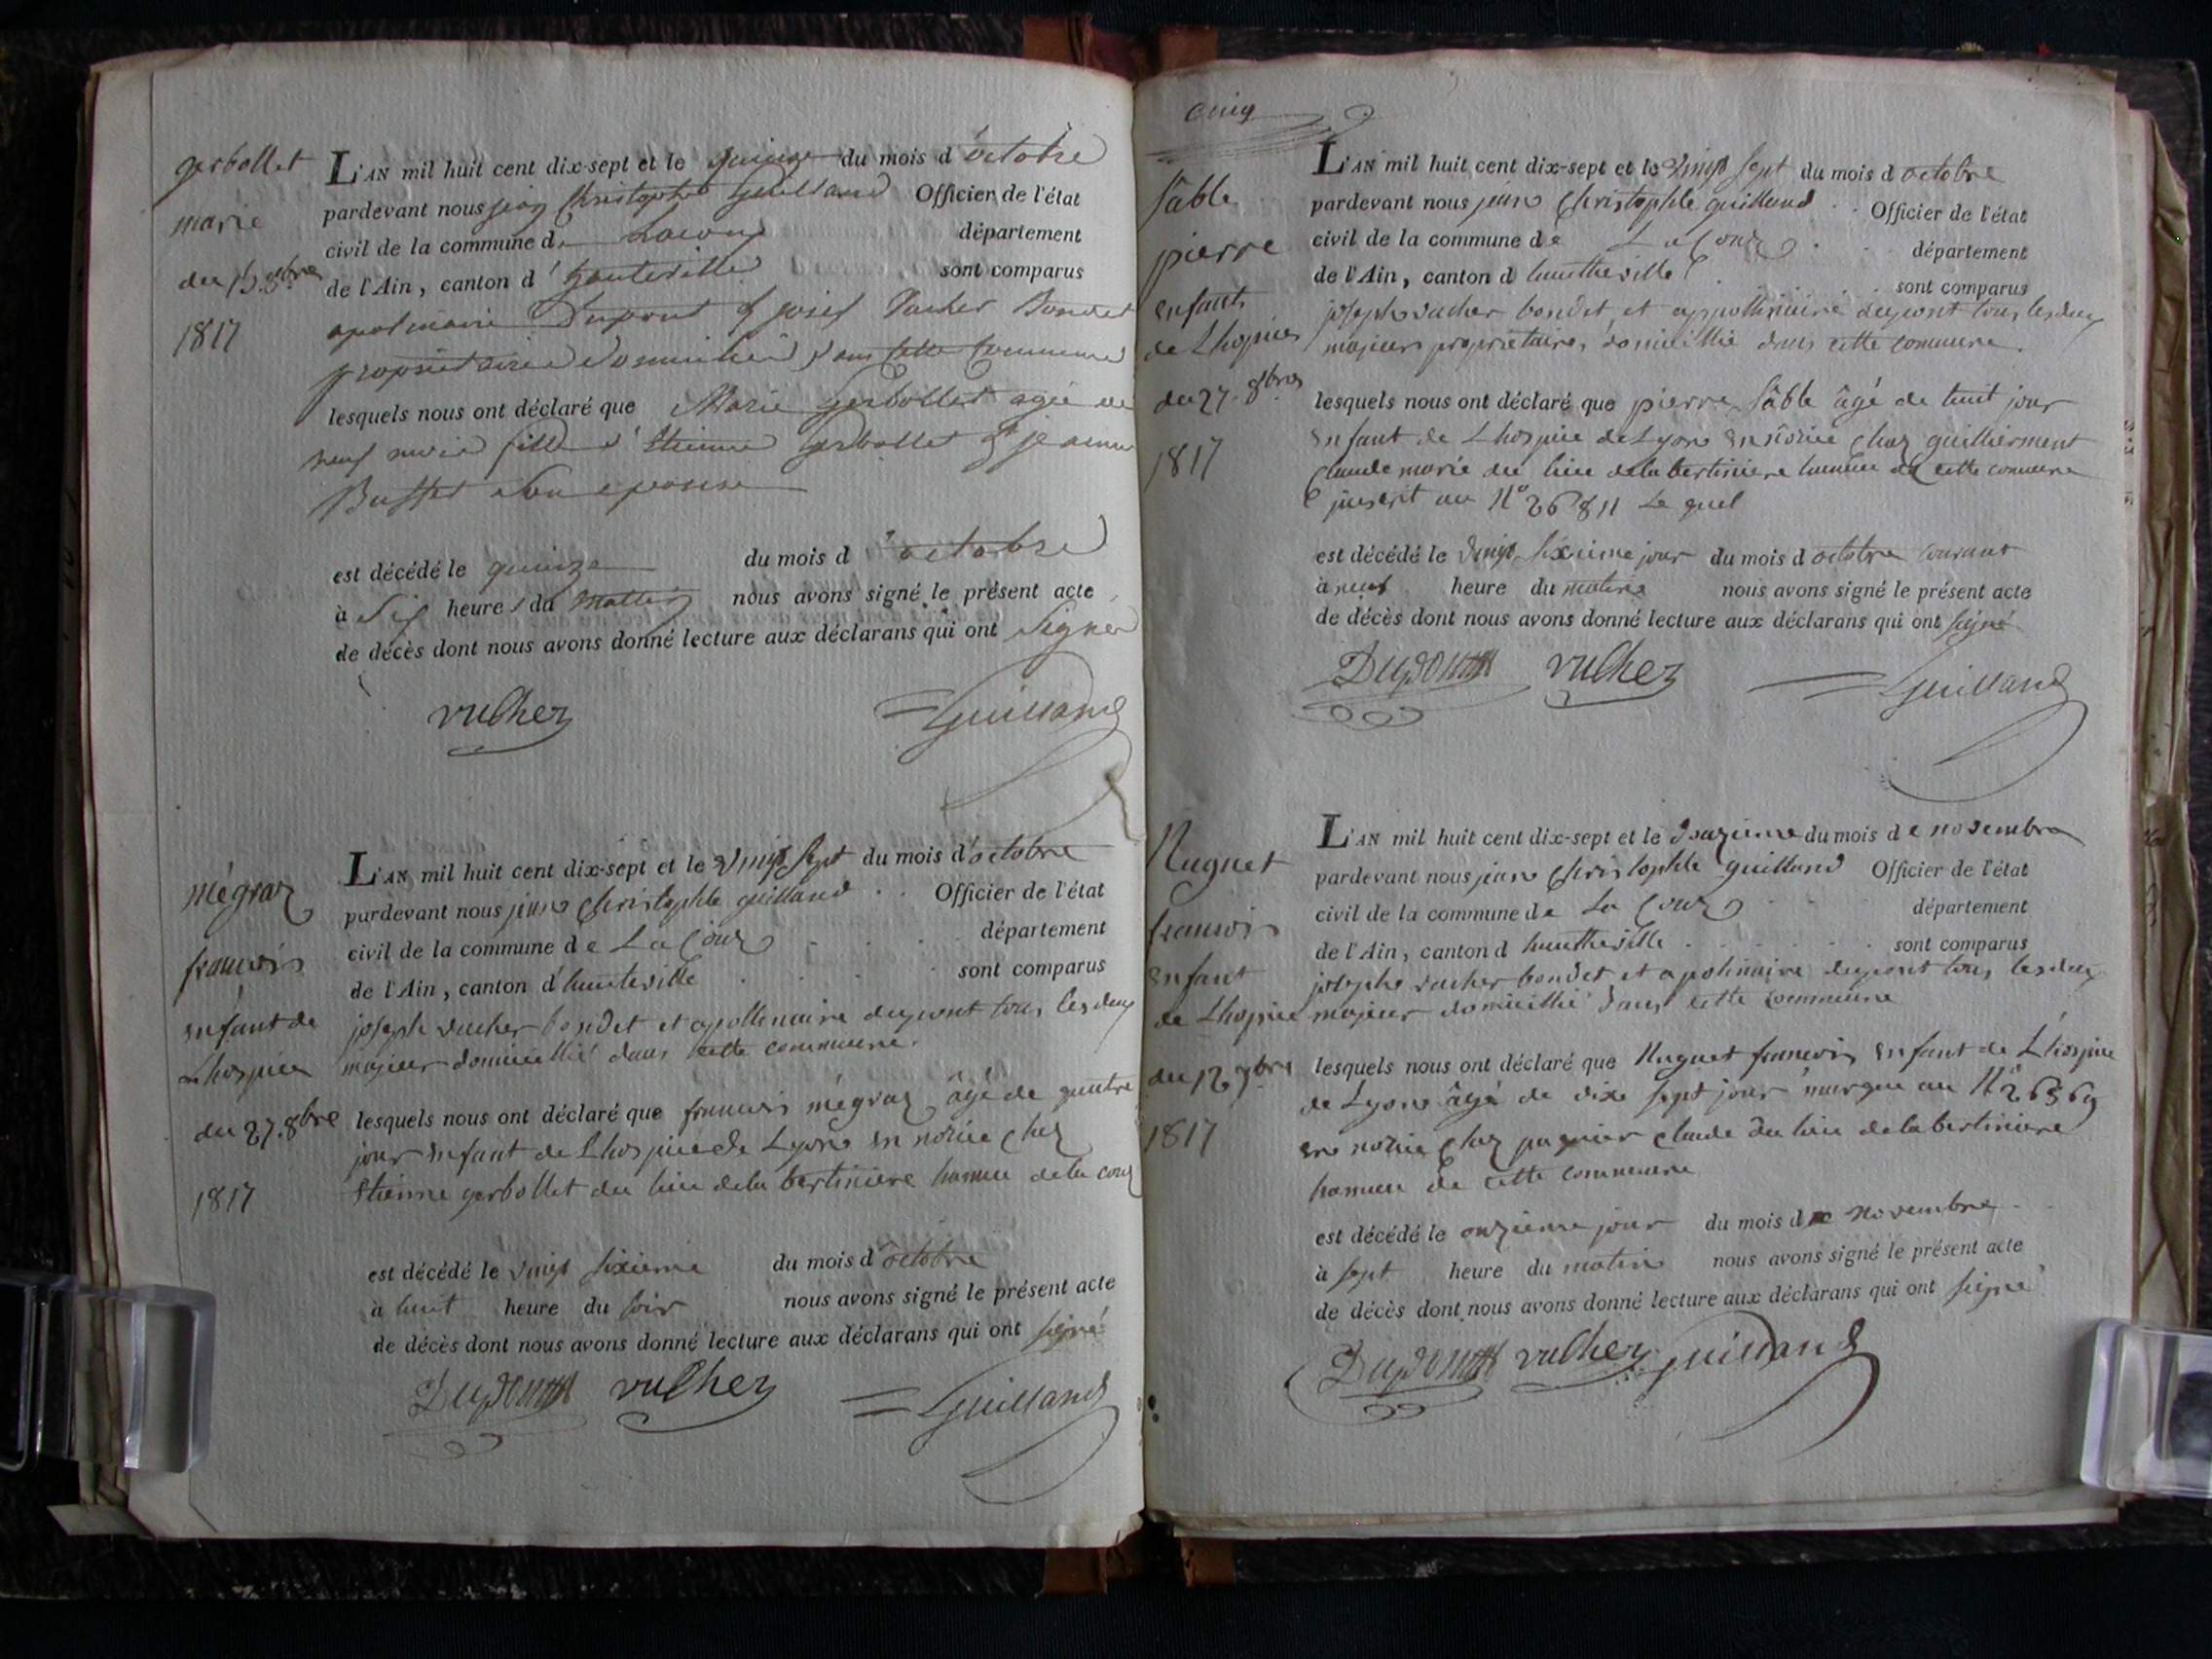 gerbollet
marie
du 15 8bre
1817
L'AN mil huit cent dix-sept et le quinze du mois d'octobre
pardevant nous jean Christophe Guilland Officier de l'état
civil de la commune de Lacoux département
de l'Ain, canton d'hauteville sont comparus
apolinaire Dupont & josef Vacher Bondet
propriétaire domicilié dans cette commune
lesquels nous ont déclaré que Marie Gerbollet agée de
neuf fille d'Etienne Gerbollet & jeanne
Buffet son epouse
est décédé le quinze du mois d'octobre
à Six heures du Mattin nous avons signé le présent acte
de décès dont nous avons donné lecture aux déclarans qui ont Signer
vucher Guilland
mégraz
francois
enfant de
Lhospice
du 27.8bre
1817
L'AN mil huit cent dix-sept et le vingt sept du mois d'octobre
pardevant nous jean Christophle guilland Officier de l'état
civil de la commune de La Coux département
de l'Ain, canton d'hauteville sont comparus
joseph vucher bondet et appollinaire dupont tous les deux
majeur domicillié dans cette commune.
lesquels nous ont déclaré que francois mégraz âgé de quatre
jour enfant de Lhospice de Lyon en norice chez
Etienne gerbollet du lieu de la bertiniere hameu de la coux
est décédé le vingt sixieme du mois d'octobre
à huit heure du soir nous avons signé le présent acte
de décès dont nous avons donné lecture aux déclarans qui ont signé
Dupontt vucher Guilland
cinq
Sâble
pierre
enfant
de Lhospice
du 27.8bre
1817
L'AN mil huit cent dix-sept et le vingt sept du mois d octobre
pardevant nous jean Christophle guilland Officier de l'état
civil de la commune de La Coux département
de l'Ain, canton d hautheville sont comparus
joseph vucher bondet et appollinaire dupont tous les deux
majeurs propriétaires domicillié dans cette commune.
lesquels nous ont déclaré que pierre Sâble âgé de huit jour
enfant de Lhospice de Lyon en norice chez guillierment
Claude marie du lieu de la bertiniere hameu de cette comune
inscrit au N° 26811 Le quel
est décédé le vingt sixieme jour du mois d octobre courant
à neuf heure du matin nous avons signé le présent acte
de décès dont nous avons donné lecture aux déclarans qui ont signé
Dupontt vucher Guilland
Nuguet
francois
enfant
de Lhospice
du 12 9bre
1817
L'AN mil huit cent dix-sept et le douzieme du mois de novembre
pardevant nous jean Christophle guilland Officier de l'état
civil de la commune de La Coux département
de l'Ain, canton d hautheville sont comparus
joseph vucher bondet et apolinaire dupont tous les deux
majeur domicillié dans cette commune
lesquels nous ont déclaré que Nuguet francois enfant de L'hospice
de Lyon âgé de dixe sept jour marque au N° 26869
en norice chez Claude du lieu de la bertiniere
hameu de cette commune
est décédé le onzieme jour du mois de novembre
à sept heure du matin nous avons signé le présent acte
de décès dont nous avons donné lecture aux déclarans qui ont signé
Dupontt vucher guilland